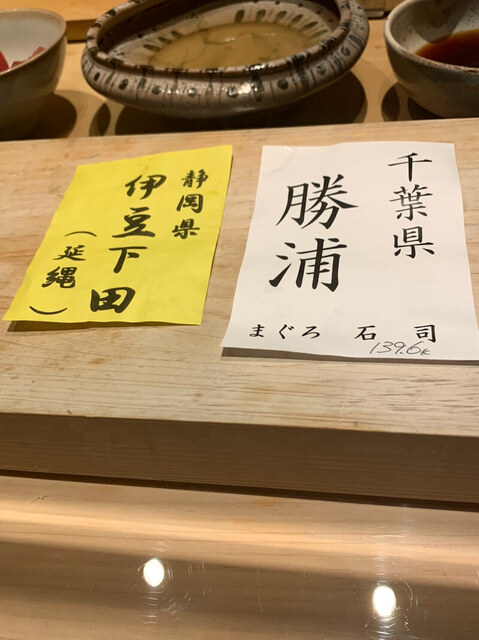 静岡県
伊豆下田
(延縄)
千葉県
勝浦
まぐろ 石司
139.6k